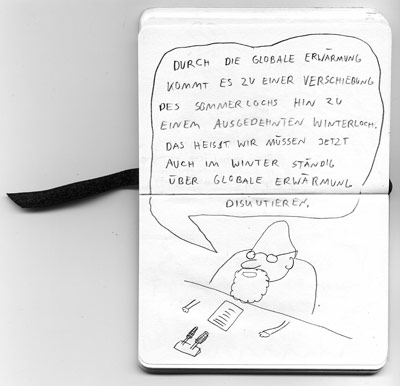 DURCH DIE GLOBALE ERWÄRMUNG
KOMMT ES ZU EINER VERSCHIEBUNG
DES SOMMERLOCHS HIN ZU
EINEM AUSGEDEHNTEN WINTERLOCH.
DAS HEISST WIR MÜSSEN JETZT
AUCH IM WINTER STÄNDIG
ÜBER GLOBALE ERWÄRMUNG
DISKUTIEREN.